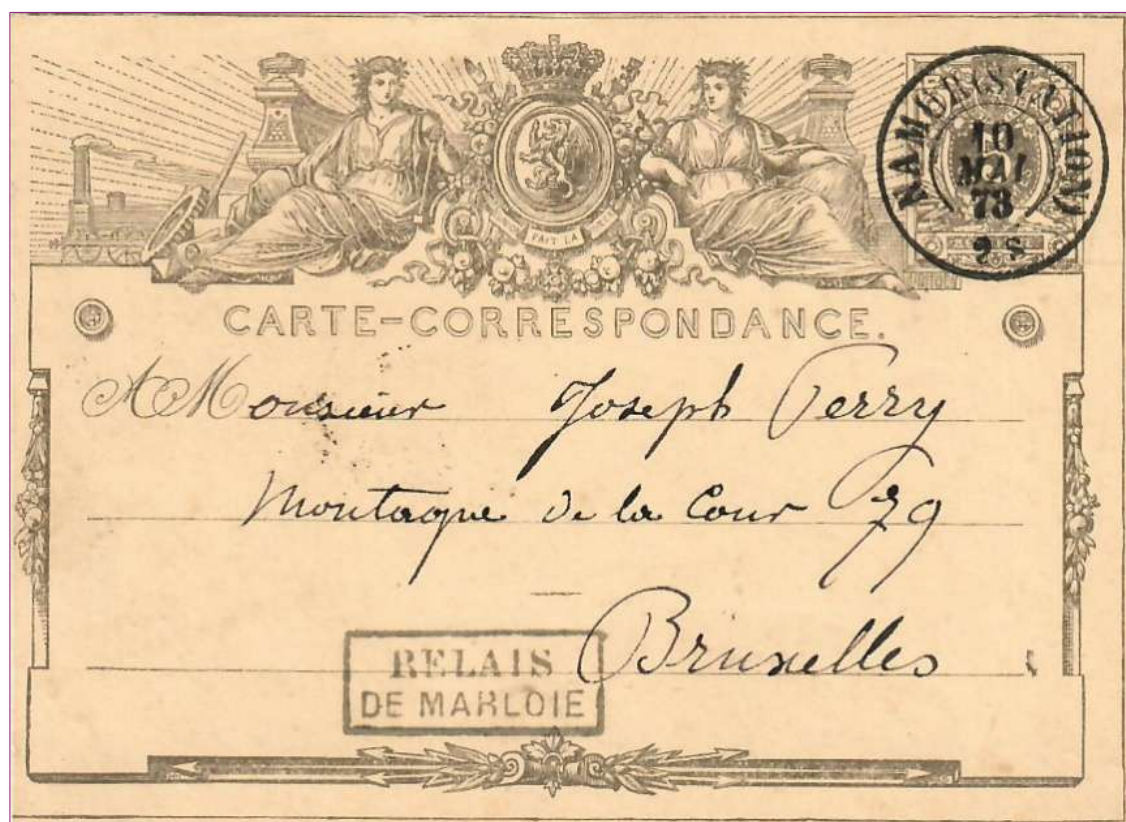 FAIT LA
NAMUR (STATION)
10
MAI
73
2 S
CARTE-CORRESPONDANCE.
A Monsieur Joseph Perry
Montagne de la Cour 79
Bruxelles
RELAIS
DE MARLOIE